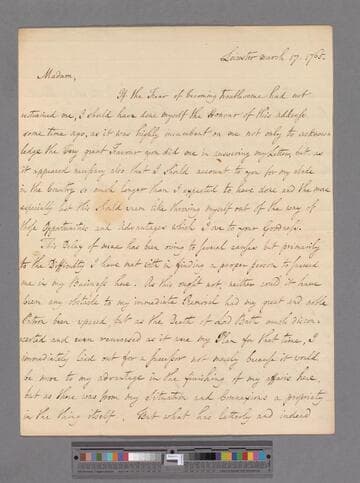 Leinster March 17, 1765.
Madam,
If the Fear of becoming troublesome had not
restrained me, I should have done myself the Honour of this address
some time ago, as it was highly incumbent on me not only to acknow
ledge the very great Favour you did me in answering my Letter, but as
it appeared necessary also that I should account to you for my stay
in the Country so much longer than I expected to have done and the more
especially lest this should seem like throwing myself out of the way of
those Opportunities and Advantages which I owe to your Goodness.
This Delay of mine has been owing to several causes but primarily
to the Difficulty I have met with in finding a proper person to succeed
me in my Business here. As this ought not, neither could it have
been any obstacle to my immediate Removal had my great and noble
Patron been spared but as the Death of Lord Bath much discon
certed and even reversed as it were my Plan for that time, I
immediately laid out for a successor not merely because it would
be more to my advantage in the finishing of my affairs here,
but as there was from my Situation and Connexions a propriety
in the thing itself. But what has latterly and indeed